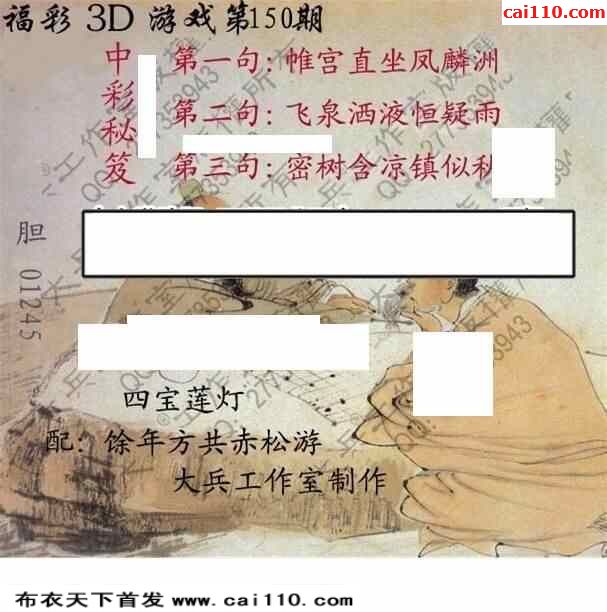 福彩 3D 游戏第150期
cai110.com
中彩秘笈
第一句: 帷宫直坐凤麟洲
第二句: 飞泉洒液恒疑雨
第三句: 密树含凉镇似秋
胆 01245
四宝莲灯
配: 馀年方共赤松游
大兵工作室制作
布衣天下首发 www.cai110.com